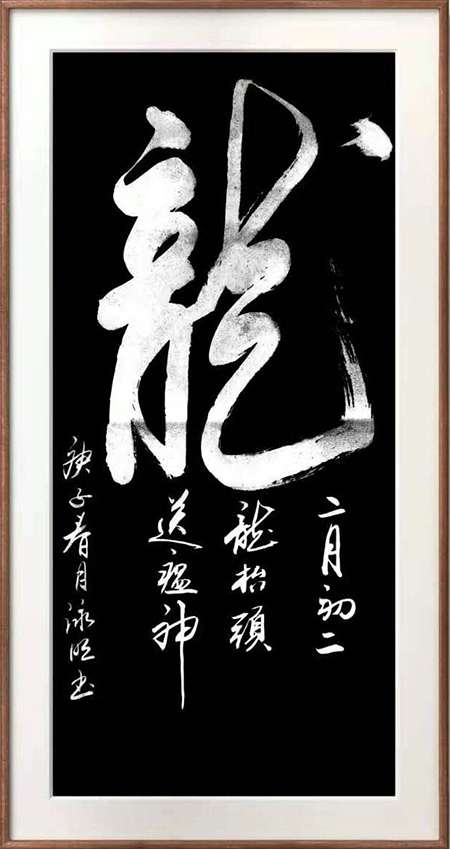 龍
二月初二
龍抬頭
送瘟神
庚子春月泳旺书